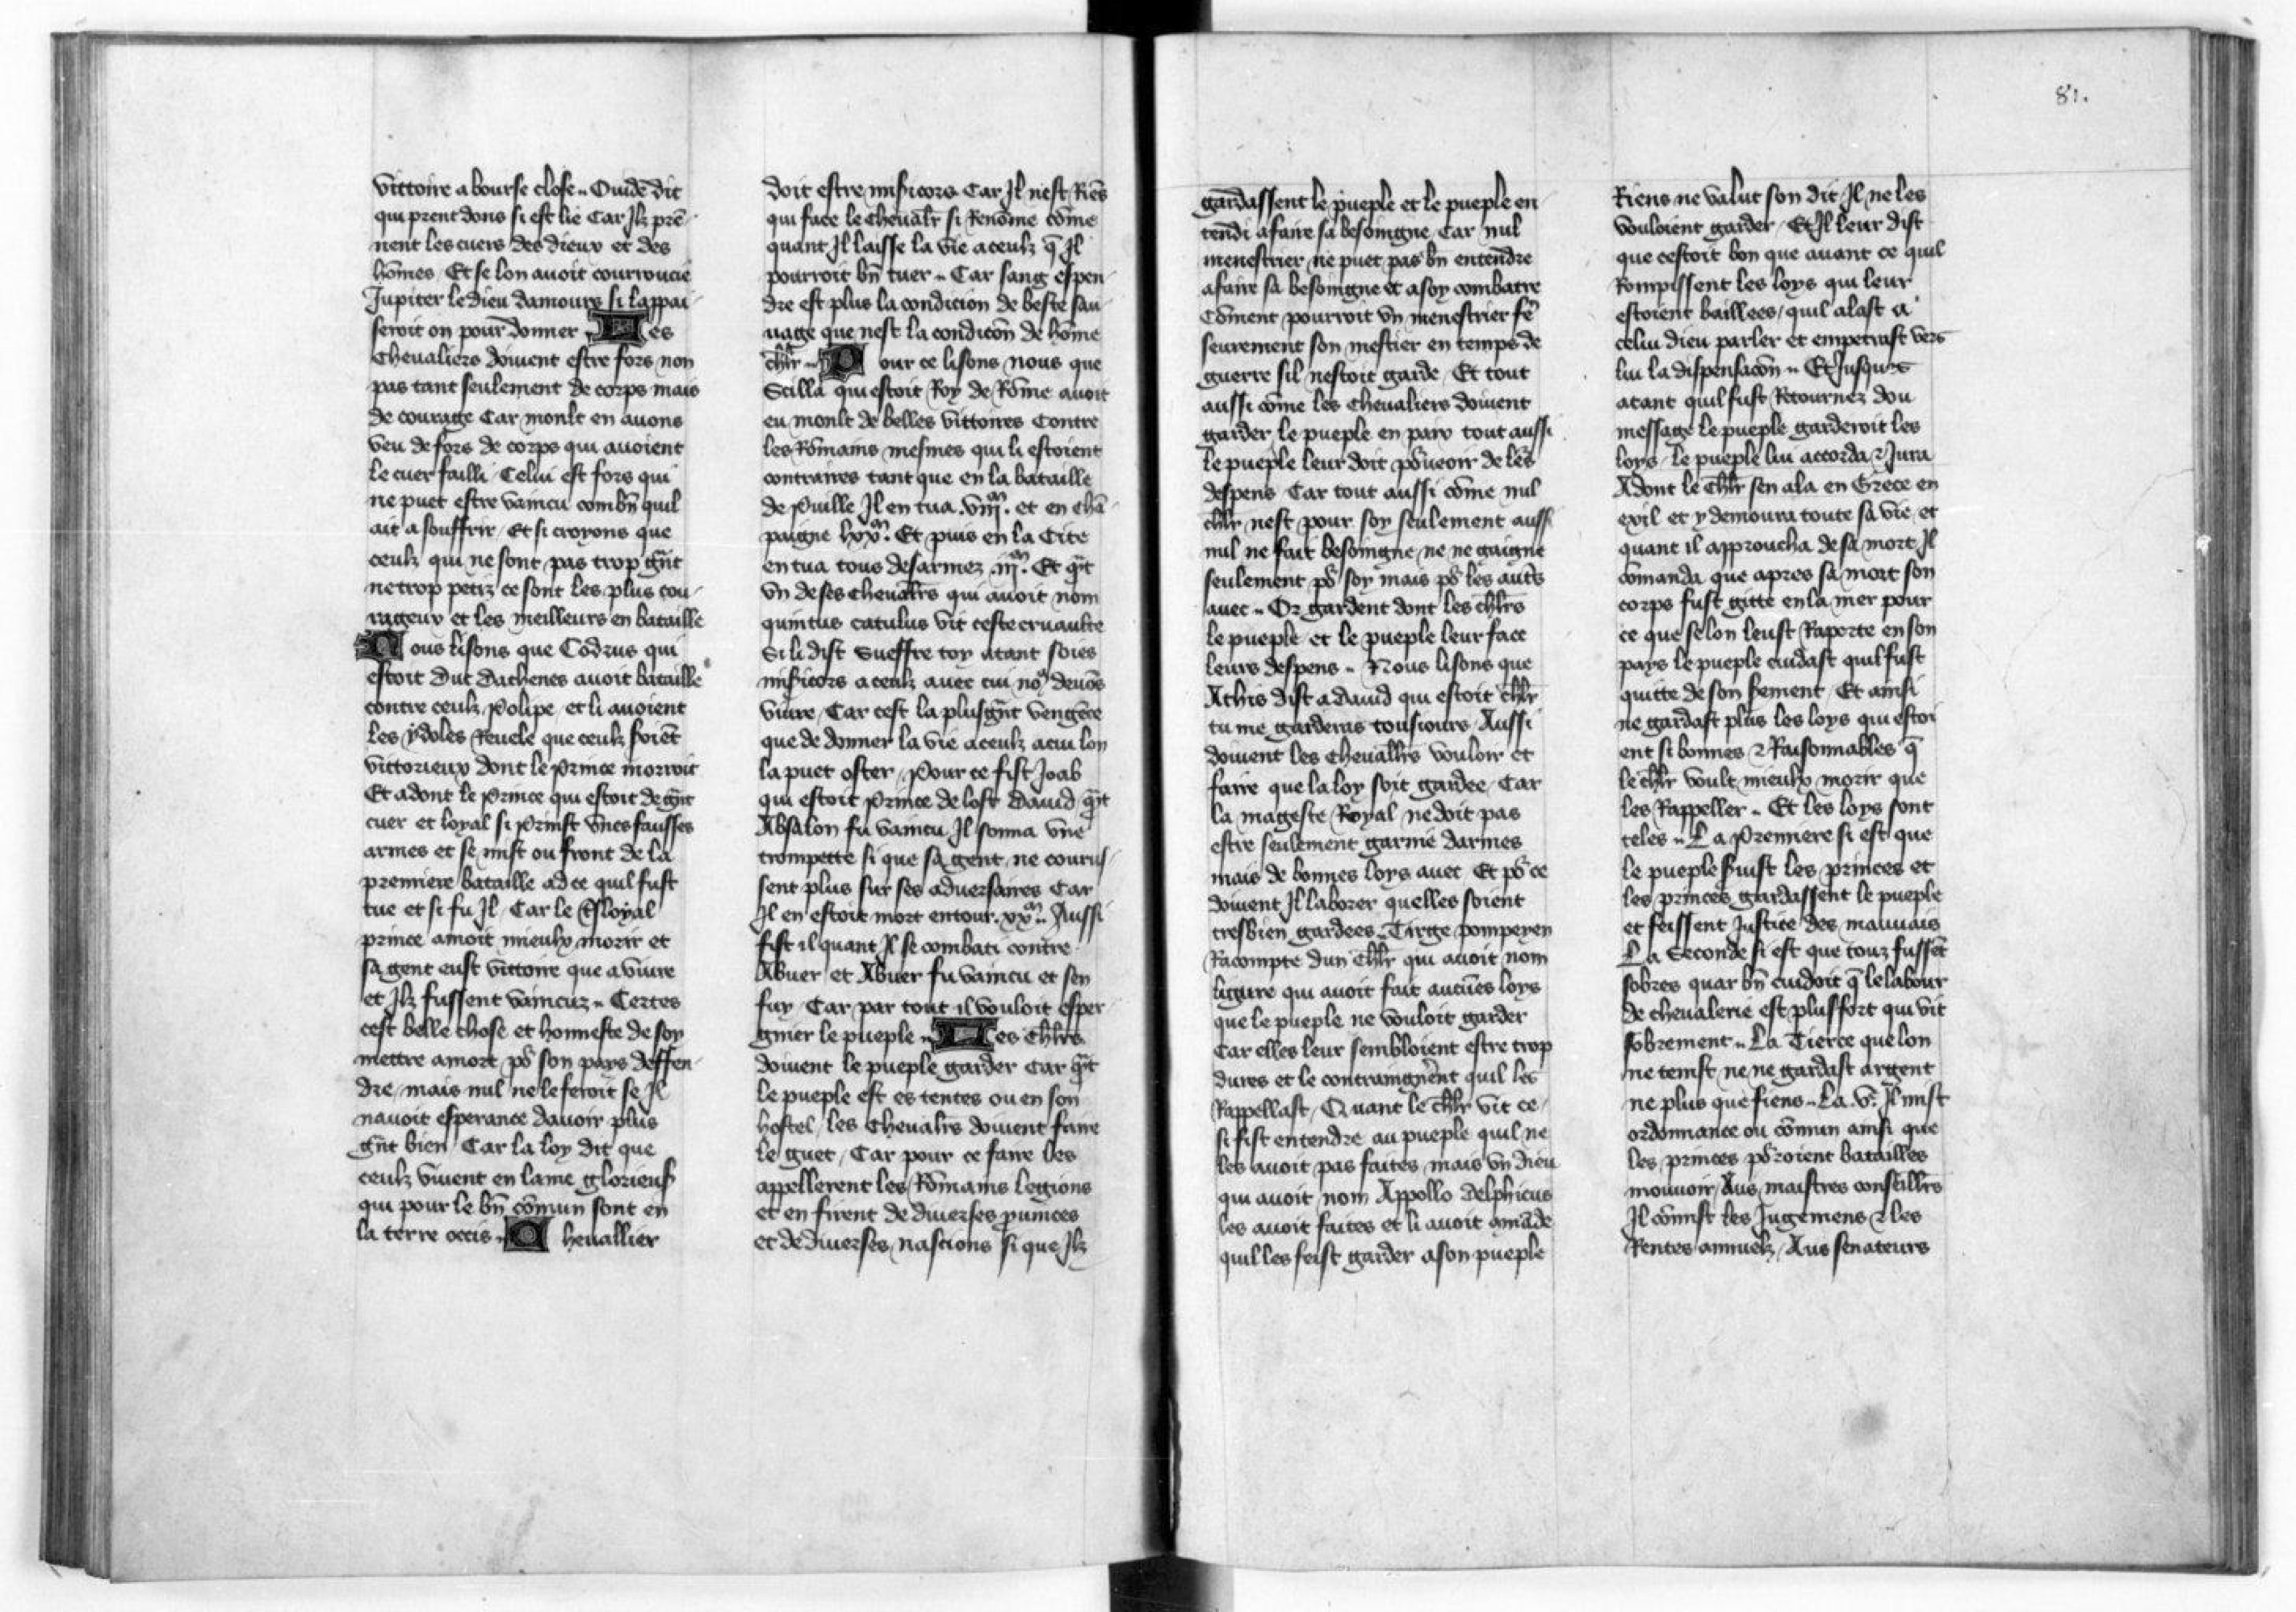 81.
vittoire a bourse close .. Ouide dit
qui prent dons si est lie Car Ilz prē-
nent les cuers des dieux et des
hōmes Et se lon auoit courroucie
Jupiter le dieu damours si lappai-
seroit on pour donner .. Les
Cheualiers doiuent estre fors non
pas tant seulement de corps mais
de courage Car moult en auons
veu de fors de corps qui auoient
le cuer failli Celui est fors qui
ne puet estre vaincu combn̄ quil
ait a souffrir Et si croyons que
ceulz qui ne sont pas trop gn̄t
ne trop petiz ce sont les plus cou-
rageux et les meilleurs en bataille
Nous lisons que Codrus qui
estoit Duc dathenes auoit bataille
contre ceulz Polipe et li auoient
les ydoles Reuele que ceulz soiēt
victorieux dont le Prince morroit
Et adont le Prince qui estoit de gn̄t
cuer et loyal si Prinst vnes fausses
armes et se mist ou front de la
premiere bataille ad ce quil fust
tue et si fu Il Car le tsloyal
prince amoit mieulx morir et
sa gent eust vittoire que a viure
et Ilz fussent vaincuz .. Certes
cest belle chose et honneste de soy
mettre a mort po᷑ son pays deffen-
dre mais nul ne le feroit se Il
nauoit esperance dauoir plus
gn̄t bien Car la loy dit que
ceulz viuent en lame glorieus
qui pour le bn̄ cōmun sont en
la terre occis .. Cheuallier
doit estre mis̄icors Car Il nest Riēs
qui face le cheualr̄ si Renōme cōme
quant Il laisse la vie a ceulz q̄ Il
pourroit bn̄ tuer .. Car sang espen-
dre est plus la condicion de beste sau-
uage que nest la condicōn de hōme
chlr̄ .. Pour ce lisons nous que
Scilla qui estoit Roy de Rōme auoit
eu moult de belles vittoires Contre
les Rōmains mesmes qui li estoient
contraires tant que en la bataille
de Puille Il en tua .viiiᵐ. et en chā-
paigne lxxᵐ. Et puis en la Cite
en tua tous desarmez .iiiᵐ. Et qn̄t
vn de ses cheualr̄s qui auoit nom
quintus catulus vit ceste cruaulte
Si li dist Sueffre toy atant soies
mis̄icors a ceulz auec cui no᷒ deuōs
viure Car cest la plus gn̄t vengēce
que de donner la vie a ceulz a cui lon
la puet oster Pour ce fist Joab
qui estoit Prince de lost dauid qn̄t
Absalon fu vaincu Il sonna vne
trompette si que sa gent ne courus-
sent plus sur ses aduersaires Car
Il en estoit mort entour .xxᵐ.. Aussi
fist il quant Il se combati contre
Abner et Abner fu vaincu et sen
fuy Car par tout il vouloit esper
gnier le pueple .. Les chlr̄s
doiuent le pueple garder Car qn̄t
le pueple est es tentes ou en son
hostel les Cheualr̄s doiuent faire
le guet Car pour ce faire les
appellerent les Rōmains legions
et en firent de diuerses puinces
et de diuerses nascions si que Ilz
gardassent le pueple et le pueple en
tendi a faire sa besoingne Car nul
menestrier ne puet pas bn̄ entendre
a faire sa besoingne et a soy combatre
Cōment pourroit vn menestrier fē
seurement son mestier en temps de
guerre sil nestoit garde Et tout
aussi cōme les Cheualiers doiuent
garder le pueple en paix tout aussi
le pueple leur doit po᷑ueoir de lēs
despens Car tout aussi cōme nul
chlr̄ nest pour soy seulement aussi
nul ne fait besoingne ne ne gaigne
seulement po᷑ soy mais po᷑ les aut̄s
auec .. Or gardent dont les chlr̄s
le pueple et le pueple leur face
leurs despens .. Nous lisons que
Athis dist a dauid qui estoit chlr̄
tu me garderas tousiours Aussi
doiuent les Cheuallr̄s vouloir et
faire que la loy soit gardee Car
la mageste Royal ne doit pas
estre seulement garnie darmes
mais de bonnes loys auec Et po᷑ ce
doiuent Il laborer quelles soient
tresbien gardees. Tirge pompeyen
Racompte dun Chlr̄ qui auoit nom
ligure qui auoit fait aucūes loys
que le pueple ne vouloit garder
Car elles leur sembloient estre trop
dures et le contraingnēnt quil les
Rappellast Quant le chlr̄ vit ce
si fist entendre au pueple quil ne
les auoit pas faites mais vn dieu
qui auoit nom Appollo delphicus
les auoit faites et li auoit cōmāde
quil les feist garder a son pueple
Riens ne valut son dit Il ne les
vouloient garder Et Il leur dist
que cestoit bon que auant ce quil
Rompissent les loys qui leur
estoient baillees quil alast a
celui dieu parler et empetrast vers
lui la dispensacōn .. Et Jusques
atant quil fust Retournez dou
message le pueple garderoit les
loys le pueple lui accorda ⁊ Jura
Adont le Chlr̄ sen ala en Grece en
exil et y demoura toute sa vie et
quant il approucha de sa mort Il
cōmanda que apres sa mort son
corps fust gitte en la mer pour
ce que se lon leust Raporte en son
pays le pueple cuidast quil fust
quitte de son s̄ement Et ainsi
ne gardast plus les loys qui estoi
ent si bonnes ⁊ Raisonnables q̄
le chlr̄ voult mieulx morir que
les Rappeller .. Et les loys sont
teles .. La Premiere si est que
le pueple s̄uist les princes et
les princes gardassent le pueple
et feissent Justice des mauuais
La Seconde si est que touz fussēt
sobres quar bn̄ cuidoit q̄ le labour
de cheualerie est plus fort qui vit
sobrement .. La Tierce que lon
ne tenist ne ne gardast argent
ne plus que fiens .. La .vᵉ. Il mist
ordonnance ou cōmun ainsi que
les princes po᷑roient batailles
mouuoir Aus maistres conseillr̄s
Il cōmist les Jugemens ⁊ les
Rentes annuelz Aus senateurs